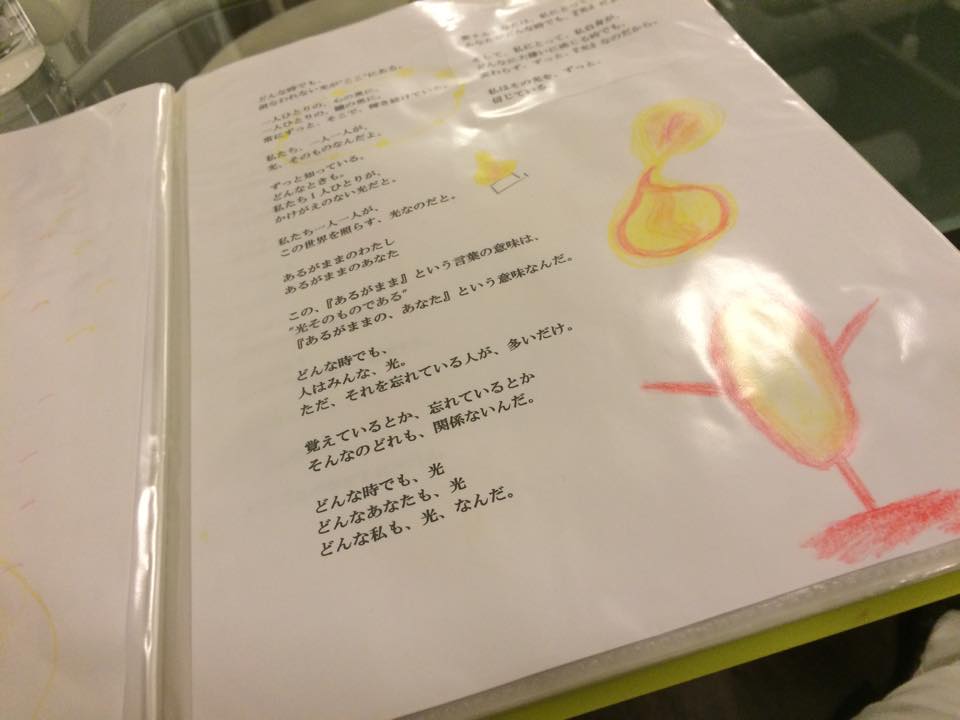 どんな時でも、
損なわれない光が"ここ"にある。
一人ひとりの、心の奥に、
一人ひとりの、瞳の奥に、
常にずっと、そこで、輝き続けていた。
私たち、一人一人が、
光、そのものなんだよ。
ずっと知っている。
どんなときも。
私たち１人ひとりが、
かけがえのない光だと。
私たち一人一人が、
この世界を照らす、光なのだと。
あるがままのわたし
あるがままのあなた
この、『あるがまま』という言葉の意味は、
"光そのものである"
『あるがままの、あなた』という意味なんだ。
どんな時でも、
人はみんな、光。
ただ、それを忘れている人が、多いだけ。
覚えているとか、忘れているとか
そんなのどれも、関係ないんだ。
どんな時でも、光
どんなあなたも、光
どんな私も、光、なんだ。
そして、私にとって、私自身が、
どんなに大嫌いに感じる時でも、
変わらず、ずっと、『光』なのだから。
私はその光を、ずっと、
信じている